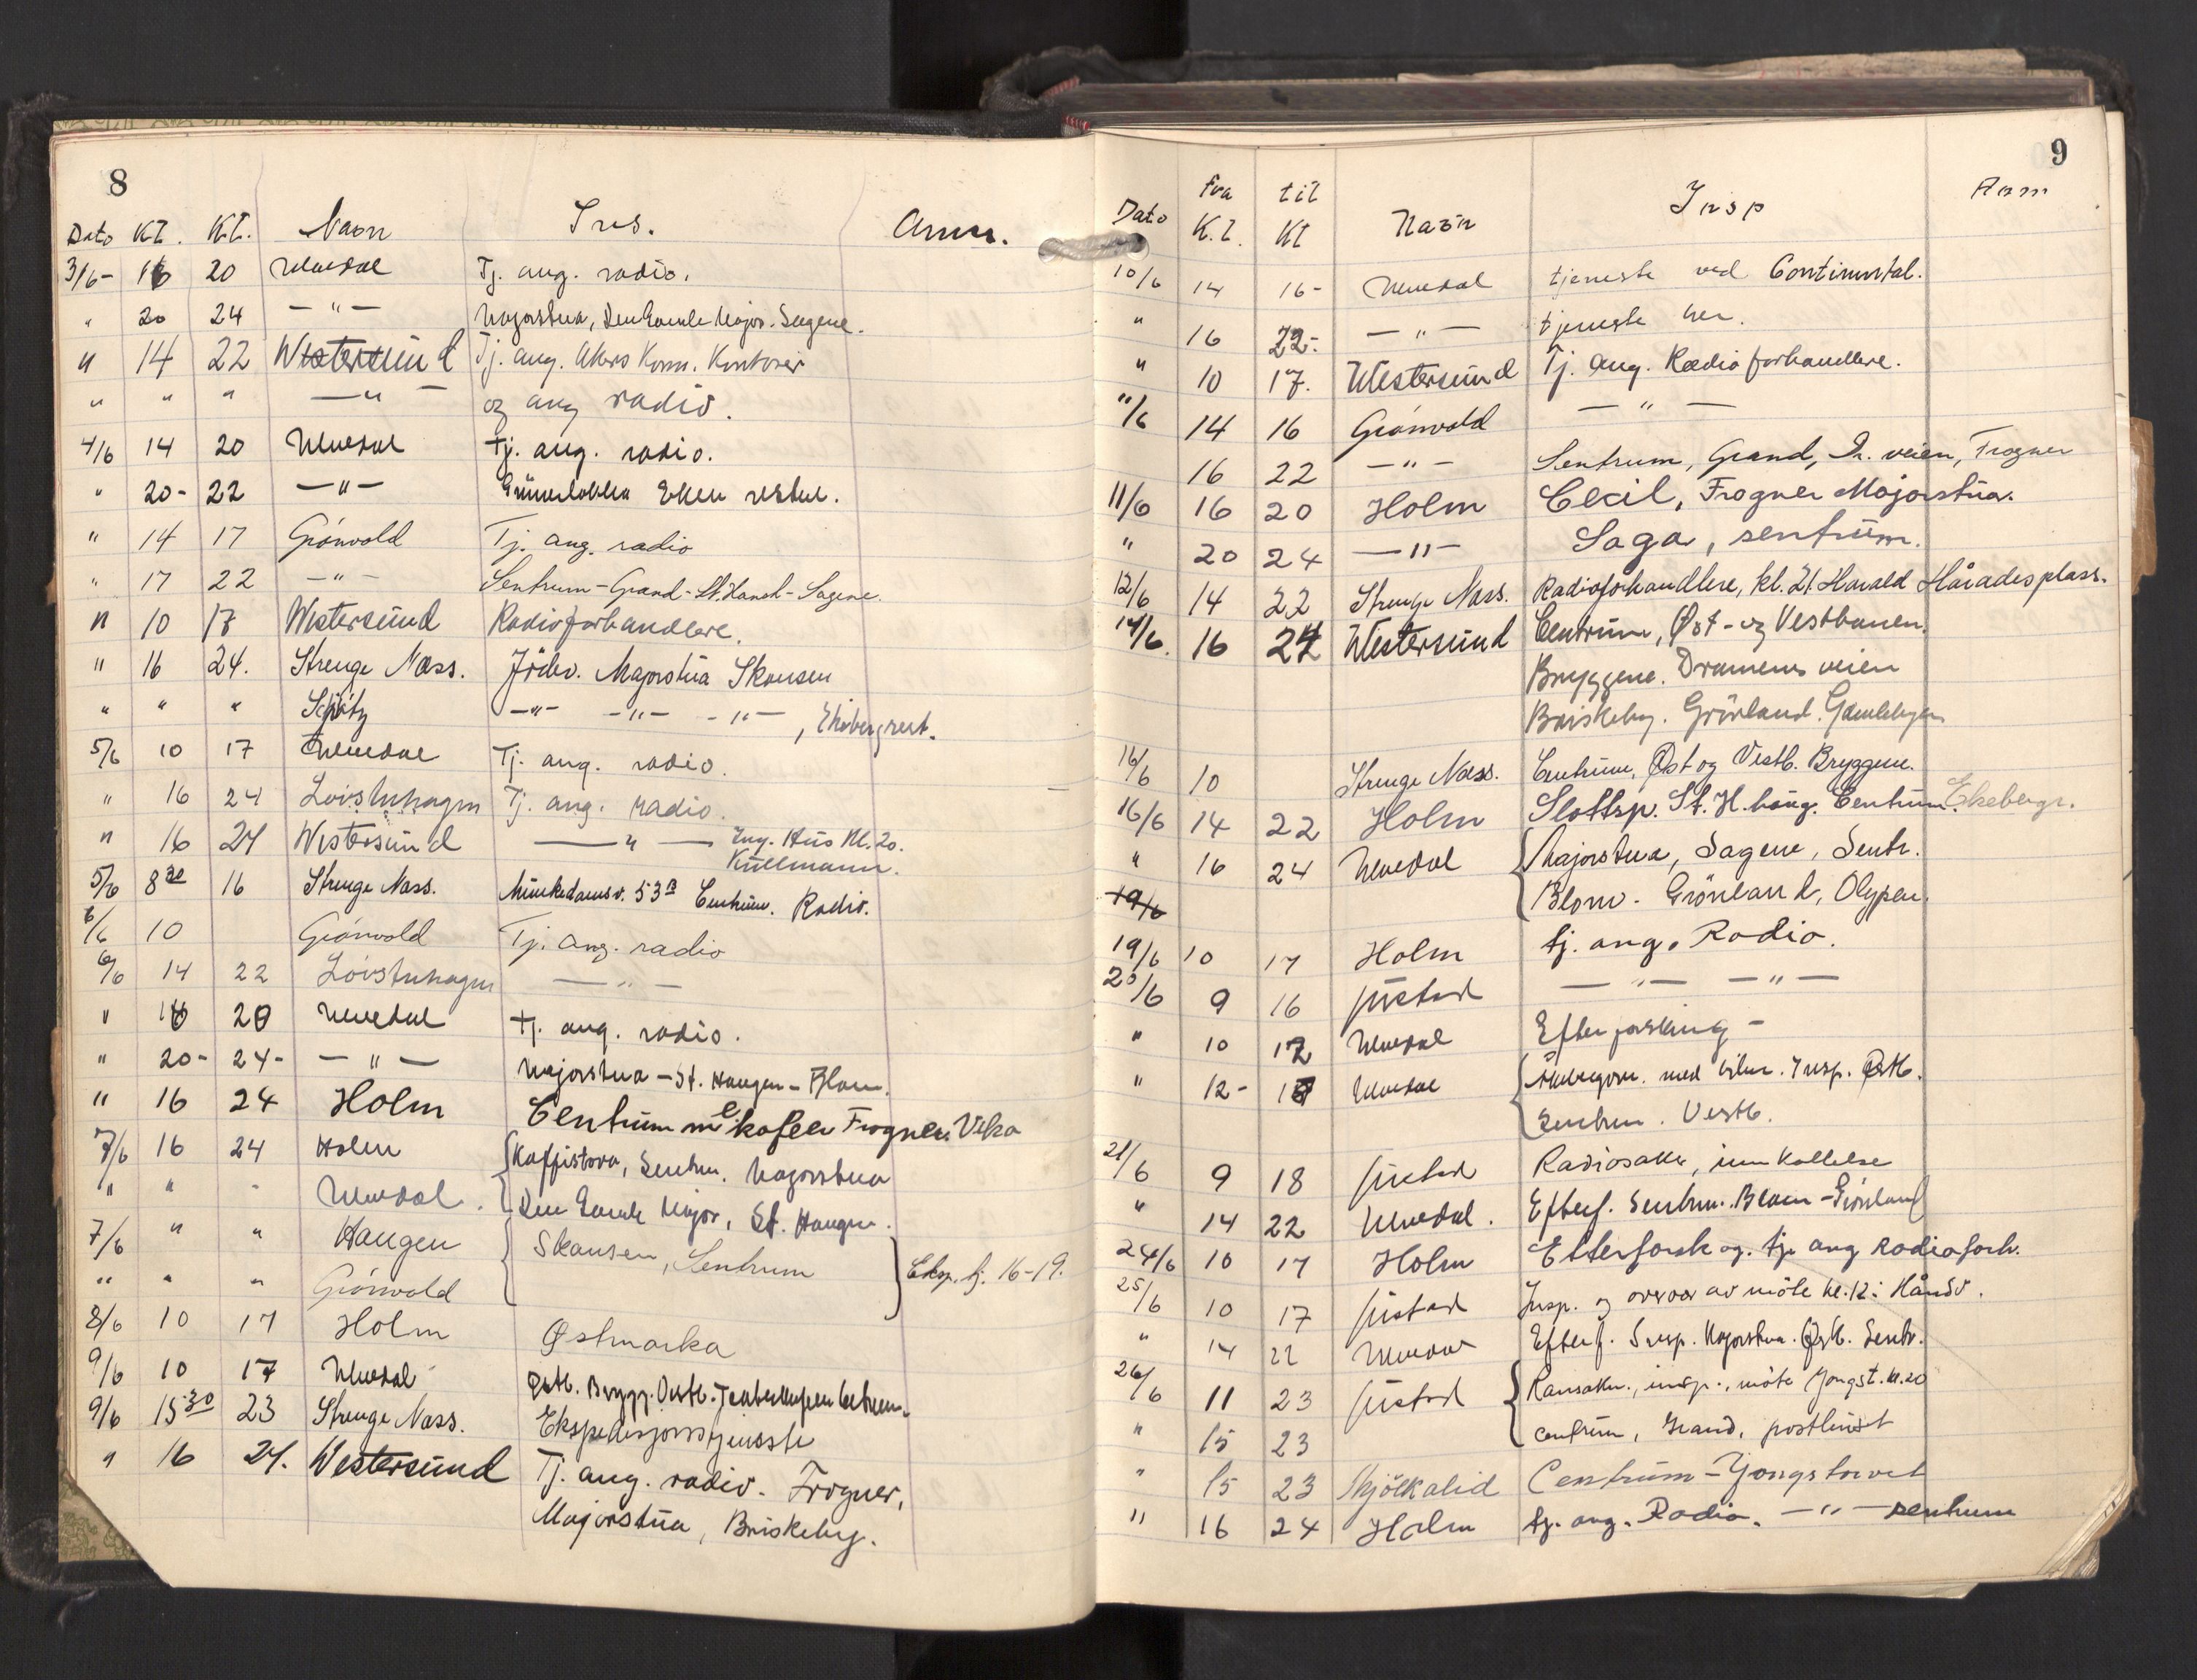 8
Dato Kl. Kl. Navn Ins. Anm.
3/6- 16 20 Ulvedal Tj. ang. radio.
" 20 24 — " — Majorstua, Den Gamle Major. Sagene.
" 14 22 Westersund Tj. ang. Akers Komm. Kontorer
" " " — " — og ang radio.
4/6 14 20 Ulvedal tj. ang. radio.
" 20- 22 — " — Grünerløkka
" 14 17 Grönvold Tj. ang. radio
" 17 22 — " — Sentrum - Grand - St. Hansh - Sagene.
" 10 17 Westersund Radioforhandlere.
" 16 24. Strenge Næss. Majorstua Skansen
" " " — " — — " — — " — , Ekebergrest.
5/6 10 17 Ulvedal Tj. ang. radio.
" 16 24 Lövstuhagen Tj. ang. radio.
" 16 24 Westersund — " — Ing. Hus kl. 20.
Kullmann.
5/6 8 30 16 Strenge Næss. Munkedamsv. 53 B Centrum. Radio.
6/6 10 Grönvold Tj. ang. radio
6/6 14 22 Lövstuhagen — " —
" 20 Ulvedal tj. ang. radio.
" 20- 24- — " — Majorstua - St. Haugen - Blom.
" 16 24 Holm Centrum kafeer Frogner. Vika
7/6 16 24 Holm Kaffistova, Sentrum. Majorstua
" " " Ulvedal. Den Gamle Major, St. Haugen.
7/6 " " Haugen Skansen, Sentrum Eksp. tj. 16-19.
" " " Grönvold
8/6 10 17 Holm Østmarka
9/6 10 17 Ulvedal Østb. Brygg.
9/6 15 30 23 Strenge Næss. Ekspedisjonstjeneste
" 16 24. Westersund Tj. ang. radio. Frogner,
Majorstua, Briskeby.
9
Dato Fra Kl. til Kl Navn Insp Anm
10/6 14 16- Ulvedal tjeneste ved Continental.
" 16 22- — " — tjeneste her.
" 10 17. Westersund Tj. ang. Radioforhandlere.
11/6 14 16 Grönvold — " —
16 22 — " — Sentrum, Grand, Dr. veien, Frogner
11/6 16 20 Holm Cecil, Frogner Majorstua.
" 20 24 — " — Saga, sentrum.
12/6 14 22 Strenge Næss. Radioforhandlere, kl. 21. Harald Hårådes plass.
14/6. 16 24 Westersund Centrum, Øst- og Vestbanen.
Bryggene. Dramens veien
Briskeby. Grönland. Gamlebyen
16/6 10 Strenge Næss. Centrum, Øst og Vestb. Bryggene.
16/6 14 22 Holm Slottsp. St. H. haug. Centrum. Ekebergr.
" 16 24 Ulvedal Majorstua, Sagene, Sentr.
19/6 Blom - Grönland, Olypen.
19/6 10 17 Holm tj. ang. Radio.
20/6 9 16 Justad — " — — " —
" 10 12 Ulvedal Efterforskning -
" 12- Ulvedal Insp. Østb.
Sentrum. Vestb.
21/6 9 18 Justad Radiosaker, innkallelse
" 14 22 Ulvedal. Efterf. Sentrum. Blom - Grönland
24/6 10 17 Holm Etterforsk og. tj. ang Radioforh.
25/6 10 17 Justad Insp. og overvær av möte kl. 12: Håndv.
" 14 22 Ulvedal Efterf. Insp. Majorstua. Østb. Sentr.
26/6 11 23 Justad Ransakn., insp., möte Youngst. kl. 20
" 15 23 centrum, Grand, posthuset
" 15 23 Centrum - Youngstorvet
" 16 24 Holm tj. ang. Radio. — " — sentrum